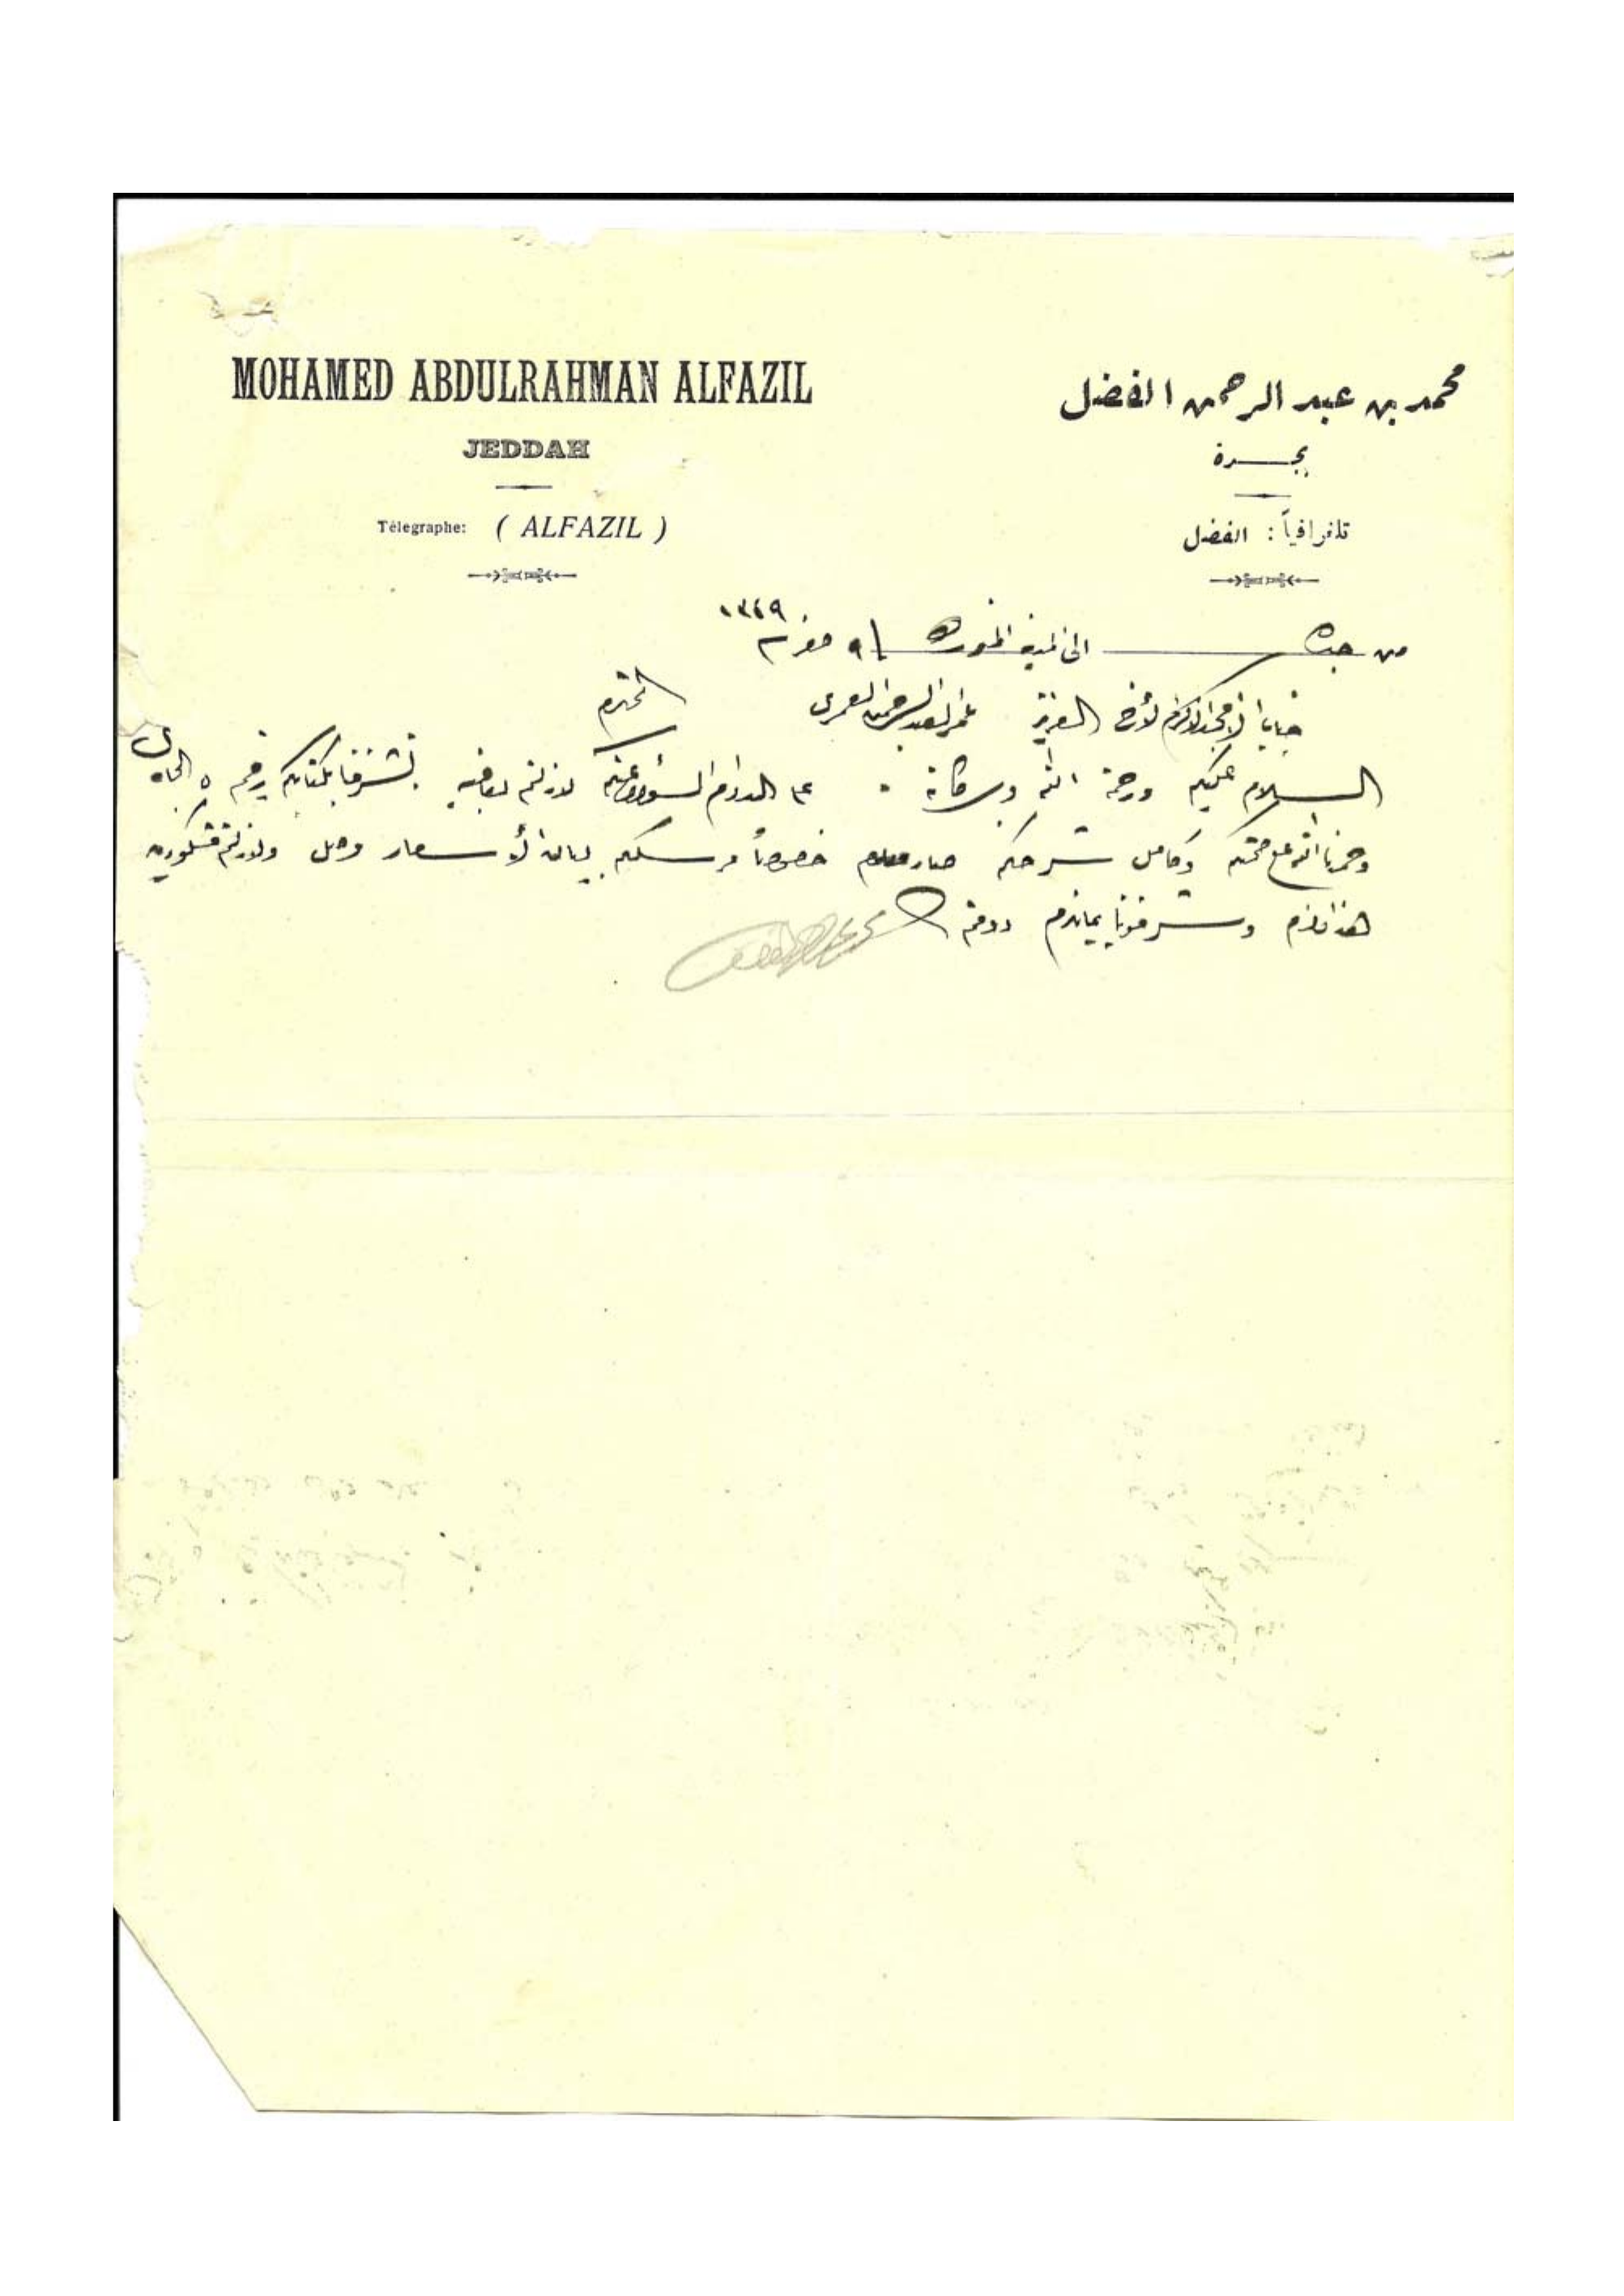 MOHAMED ABDULRAHMAN ALFAZIL
JEDDAH
Télegraphe: ( ALFAZIL )
محمد بن عبد الرحمن الفضل
بجدة
تلغرافياً : الفضل
من جده الى المدينه المنوره ٩ صفر ١٣٤٩
جناب الامجد الاكرم الأخ العزيز العبد الرحمن العمرى المحترم
السلام عليكم ورحمة الله وبركاته . على الدوام السؤال عنكم لازلتم بعافيه تشرفنا بكتابكم رقم ٥ الجارى
وحمدنا الله على صحتكم وكامل شرحكم صار معلوم خصوصاً مرسلكم بيان الأسعار وصل ولازلتم مشكورين
هذا مالزم وشرفونا بمايلزم ودمتم